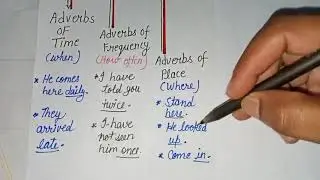 Adverbs
OF
Time
(when)
* He comes
here daily.
* They
arrived
late.
Adverbs of
Frequency
(How often)
* I have
told you
twice.
* I have
not seen
him once.
Adverbs of
Place
(Where)
* Stand
here.
* He looked
up.
* Come in.